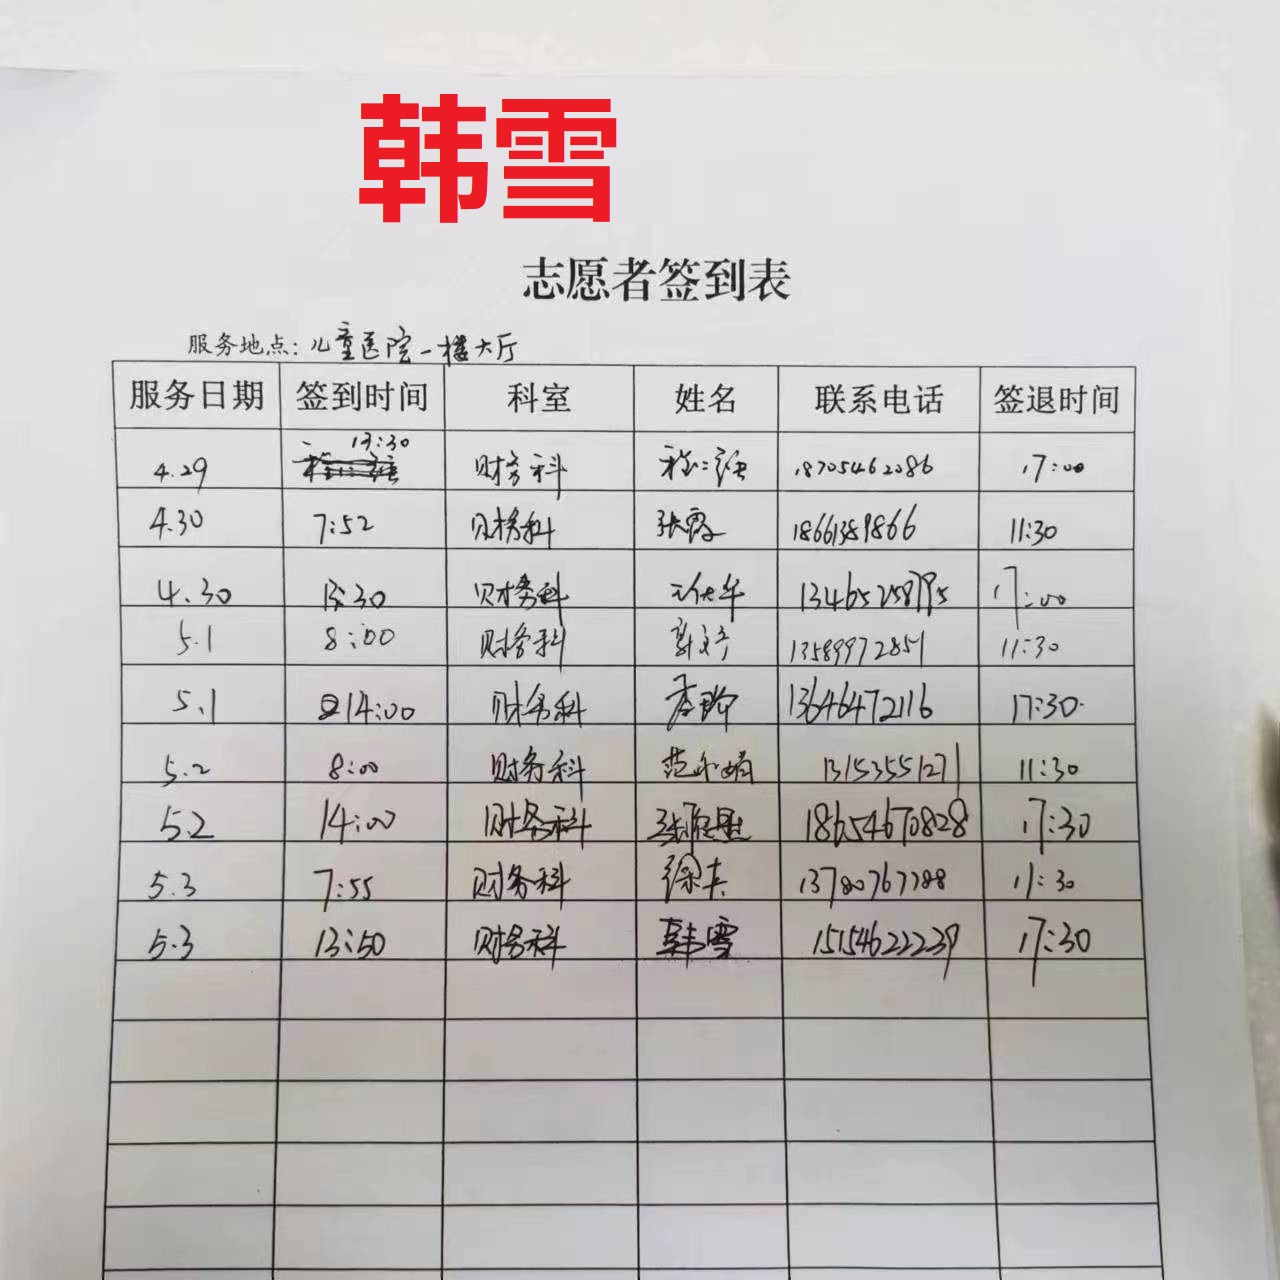 韩雪
志愿者签到表
服务地点：儿童医院一楼大厅
服务日期 签到时间 科室 姓名 联系电话 签退时间
4.29 13:30 财务科 18705462086 17:00
4.30 7:52 财务科 张霞 18661389866 11:30
4.30 13:30 财务科 17:00
5.1 8:00 财务科 13589972851 11:30
5.1 14:00 财务科 13646472116 17:30
5.2 8:00 财务科 13153551271 11:30
5.2 14:00 财务科 18654670828 17:30
5.3 7:55 财务科 11:30
5.3 13:50 财务科 韩雪 15154622239 17:30